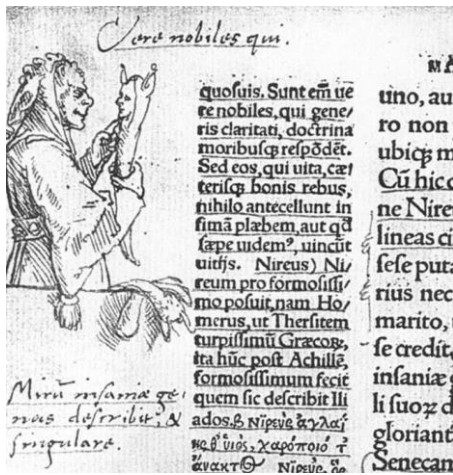 Vere nobiles qui.
quosuis. Sunt em̄ ue
re nobiles, qui gene⸗
ris claritati, doctrina
moribusꝗ respōdēt.
Sed eos, qui uita, cæ⸗
terisꝗ bonis rebus,
nihilo antecellunt in
fimā plæbem, aut qd̄
ſæpe uidem⁹, uincūt
uitijs. Nireus) Ni⸗
reum pro formosiſſi⸗
mo poſuit, nam Ho⸗
merus, ut Therſitem
turpiſſimū Græcoꝝ,
ita hūc poſt Achillē,
formoſiſſimum fecit
quem ſic deſcribit Ili
ados. β Νιρεὺς ἀγλαί
ης θ' ὑιὸς, χαρόποιό τ'
ἄνακτ Νιρεὺς
Mirū insaniæ ge-
nus describit, &
singulare.
MA
uno, au
ro non
ubiꝗ m
Cū hic
ne Nire
lineas ci
ſeſe puta
rius nec
marito,
ſe credit,
inſaniæ
li ſuoꝝ d
gloriant
Senecam